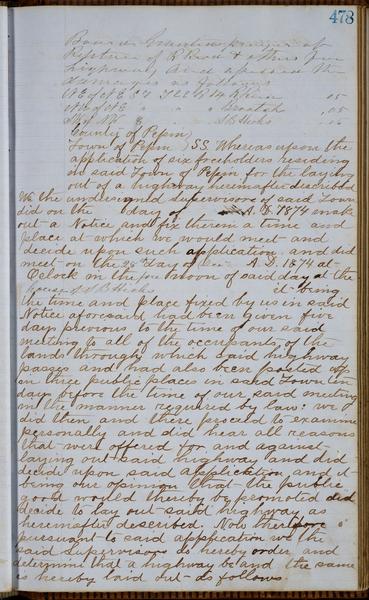 478
Board
Petition of R others for
highway and assessed the
damages as follows
NE of NE 24 T 22 R 14 R .05
NW of NE " " " .05
S B Hicks .05
County of Pepin)
Town of Pepin ) SS. Whereas upon the
application of six freeholders residing
in said Town of Pepin for the laying
out of a highway hereinafter described
We the undersigned Supervisors of said Town
did on the day of A. D. 1874 make
out a Notice and fix therein a time and
place at which we would meet and
decide upon such application, and did
meet on the day of A D. 1874 at
Oclock in the noon of said day at the
house of S B Hicks it being
the time and place fixed by us in said
Notice aforesaid had been given five
days previous to the time of our said
meeting to all of the occupants of the
lands through which said highway
passes and had also been posted up
in three public places in said Town ten
days before the time of our said meeting
in the manner required by law: we
did then and there proceed to examine
personally and did hear all reasons
that were offered for and against
laying out said highway and did
decide upon said application and it
being our opinion that the public
good would thereby be promoted did
decide to lay out said highway as
hereinafter described. Now therefore
pursuant to said application we the
said Supervisors do hereby order and
determine that a highway be and the same
is hereby laid out as follows